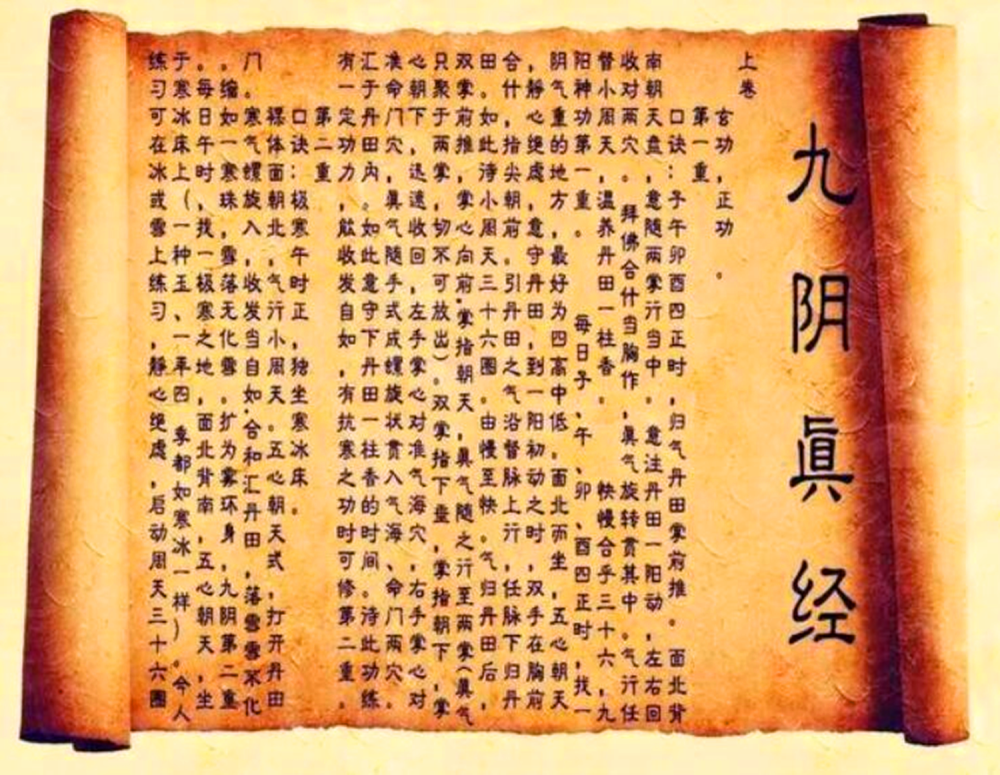 九阴眞经
上卷
玄功，正功。
第一重
口诀：子午卯酉四正时，归气丹田掌前推。面北背
南朝天盘，意随两掌行当中。意注丹田一阳动，左右回
收对两穴。拜佛合什当胸作，眞气旋转贯其中。气行任
督小周天，温养丹田一柱香。快慢合乎三十六，九
阳神功第一重。每日子、午、卯、酉四正时，找一
阴气重的地方，最好为四高中低。面北而坐，五心朝天
，静心绝虑，意守丹田，到一阳初动之时，双手在胸前
合什，指尖朝前。引丹田之气沿督脉上行，任脉下归丹
田。如此待小周天三十六圈。由慢至快。气归丹田后，
双掌前推，掌心向前，掌指朝天，眞气随之行至两掌（眞气
只聚于两掌，切不可放出）。双掌指下垂，掌指朝下，掌
心朝下，迅速收回，左手掌心对准气海穴，右手掌心对
准命门穴。眞气随手式成螺旋状贯入气海、命门两穴。
汇于丹田内。如此意守下丹田一柱香的时间。待此功练
有一定功力，能收发自如，有抗寒之功时可修第二重。
第二重
口诀：极寒午时正，独坐寒冰床。
裸体面朝北，气行小周天。五心朝天式，打开丹田
门。寒气螺旋入，收发当自如。合和汇丹田，落雪雪不化
。缩如一寒珠，雪落无化雪。扩为雾环身，九阴第二重
。每日午时，找一极寒之地，面北背南，五心朝天，坐
于寒冰床上（一种玉、一年四季都如寒冰一样）。今人
练习可在冰或雪上练习，静心绝虑，启动周天三十六圈